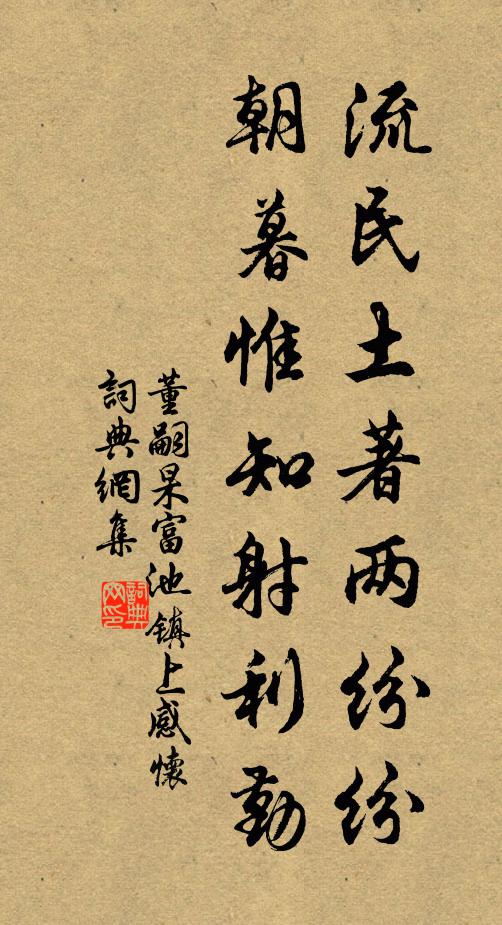 流民土著两纷纷
朝暮惟知射利勤
董嗣杲富池镇上感懷
詞典網集
詞典网印